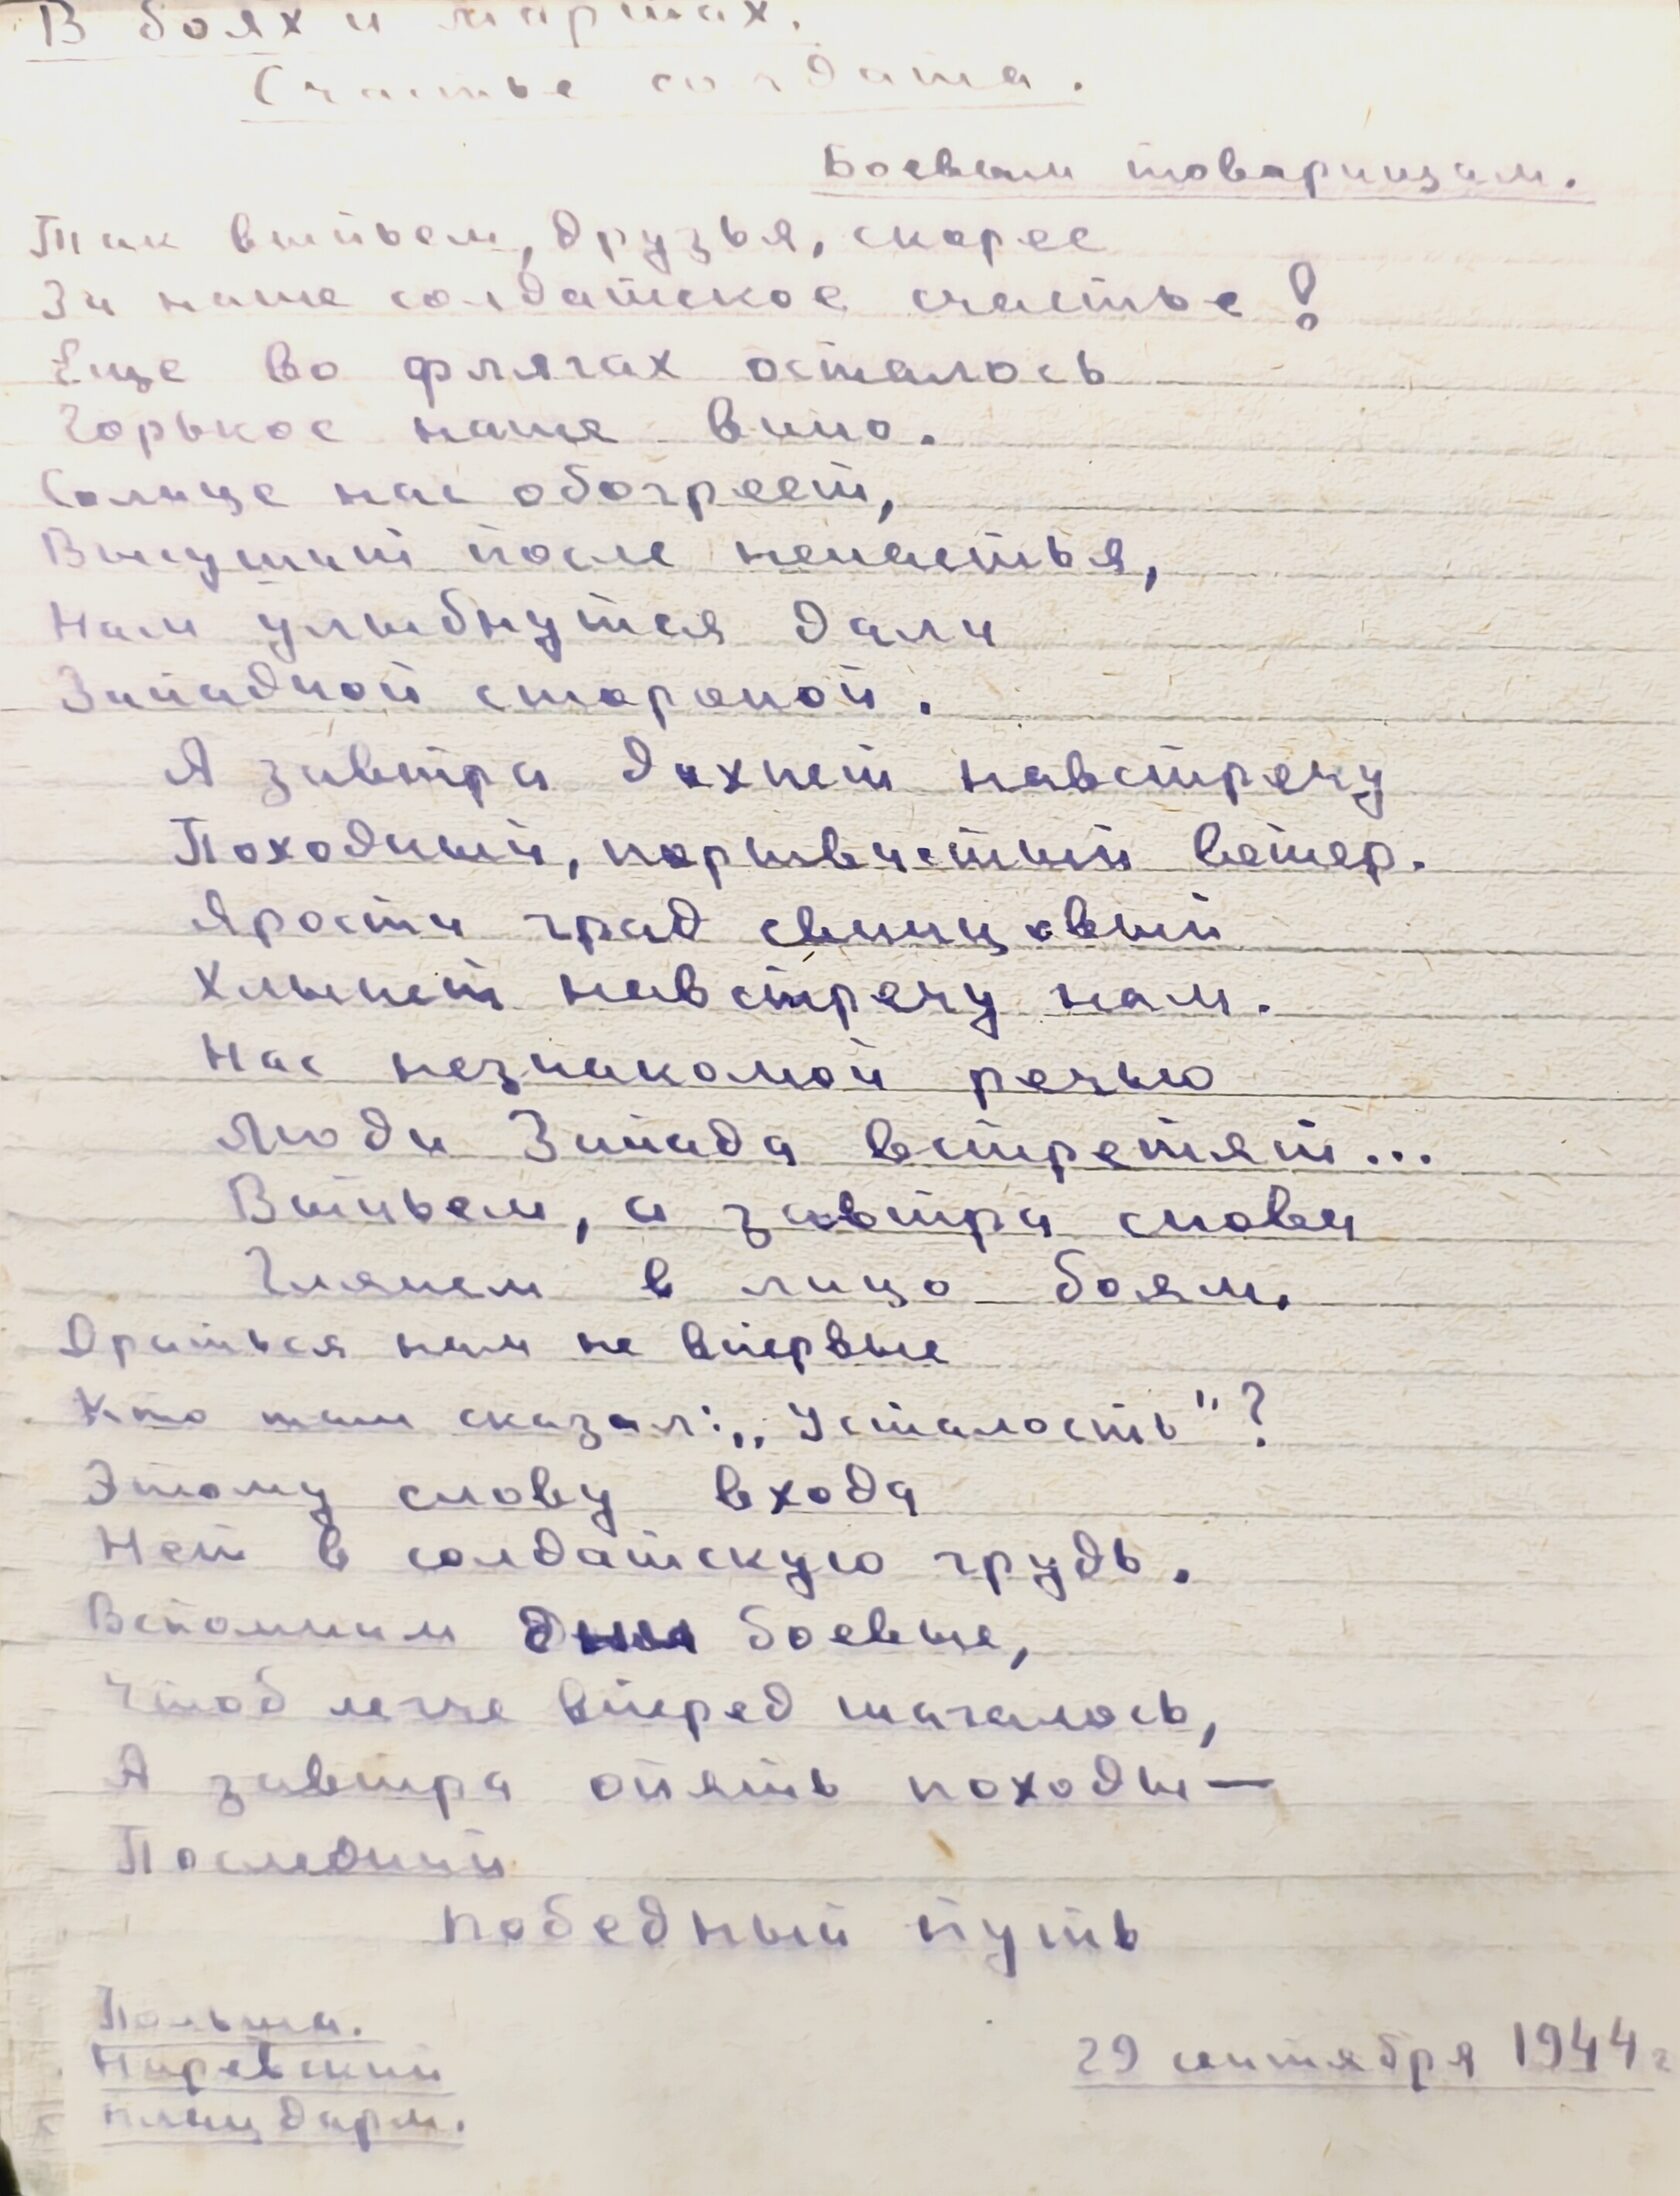 В боях и маршах.
Счастье солдата.
Боевым товарищам.
Так выпьем, друзья, скорее
За наше солдатское счастье!
Еще во флягах осталось
Горькое наше вино.
Солнце нас обогреет,
Высушит после ненастья,
Нам улыбнутся дали
Западной стороной.
А завтра дохнет навстречу
Походный, порывистый ветер.
Ярости град свинцовый
Хлынет навстречу нам.
Нас незнакомой речью
Люди Запада встретят...
Выпьем, а завтра снова
Глянем в лицо боям.
Драться нам не впервые
Кто там сказал: „Усталость"?
Этому слову входа
Нет в солдатскую грудь.
Вспомним дни боевые,
Чтоб легче вперед шагалось,
А завтра опять походы—
Последний
победный путь
Польша.
Наревский
плацдарм.
29 сентября 1944 г